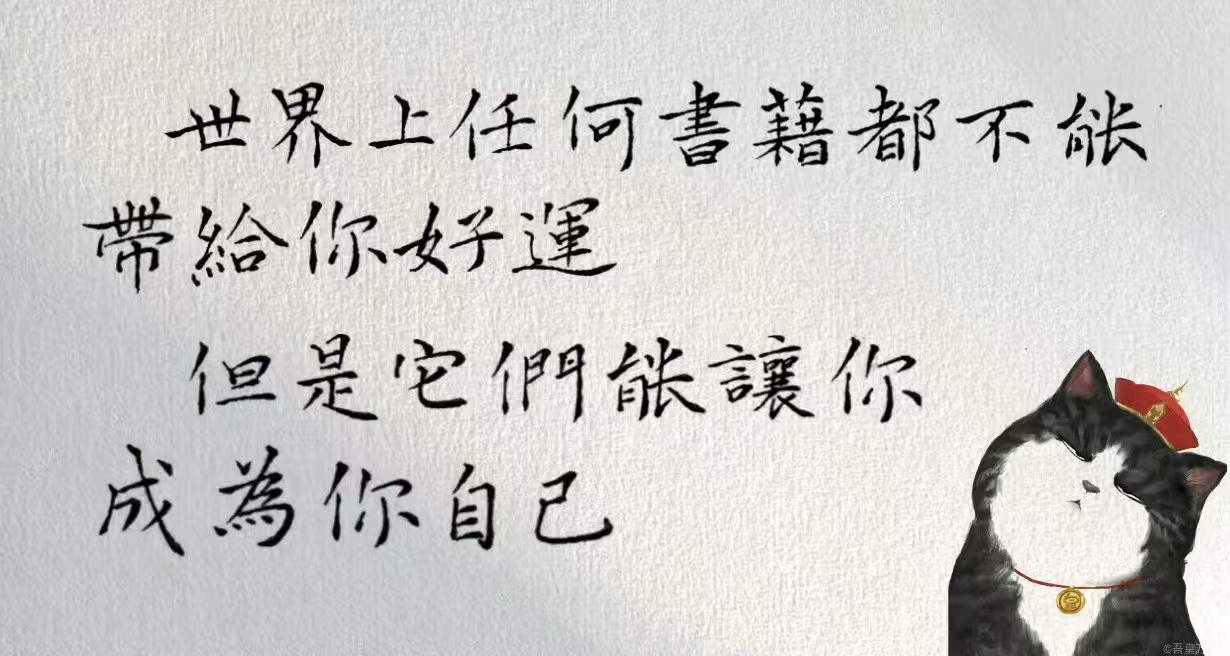 世界上任何書藉都不能
帶給你好運
但是它們能讓你
成為你自己
©吾皇万